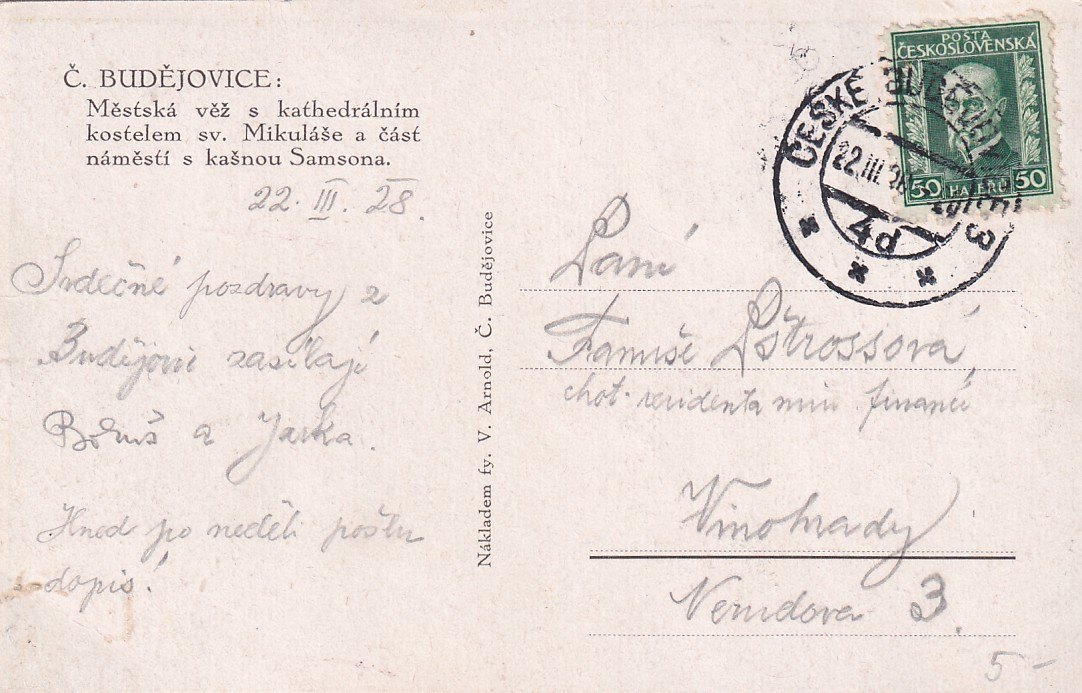 Č. BUDĚJOVICE:
Městská věž s kathedrálním
kostelem sv. Mikuláše a část
náměstí s kašnou Samsona.
22. III. 28.
Srdečné pozdravy z
zasílají
a Jarka.
Hned po neděli pošlu
dopis!
Nákladem fy. V. Arnold, Č. Budějovice
POŠTA
ČESKOSLOVENSKÁ
50 HALÉŘŮ 50
ČESKÉ BUDĚJOVICE 3
22.III.28
4d
Paní
Štrossová,
chot. min. financí
Vinohrady
Nerudova 3.
5-